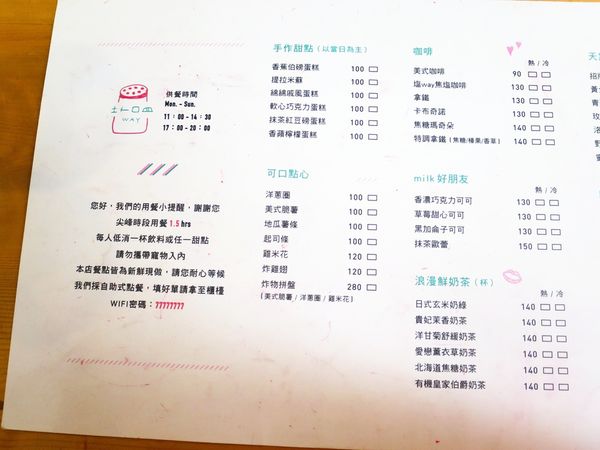 土口皿
WAY
供餐時間
Mon. - Sun.
11:00-14:30
17:00-20:00
您好，我們的用餐小提醒，謝謝您
尖峰時段用餐 1.5 hrs
每人低消一杯飲料或任一甜點
請勿攜帶寵物入內
本店餐點皆為新鮮現做，請您耐心等候
我們採自助式點餐，填好單請拿至櫃檯
WIFI密碼：77777777
手作甜點（以當日為主）
香蕉伯磅蛋糕 100
提拉米蘇 100
綿綿戚風蛋糕 100
軟心巧克力蛋糕 100
抹茶紅豆磅蛋糕 100
香蘋檸檬蛋糕 100
可口點心
洋蔥圈 100
美式脆薯 100
地瓜薯條 100
起司條 100
雞米花 120
炸雞翅 120
炸物拼盤 280
(美式脆薯/洋蔥圈/雞米花)
咖啡
熱/冷
美式咖啡 90
塩way焦塩咖啡 130
拿鐵 130
卡布奇諾 130
焦糖瑪奇朵 140
特調拿鐵(焦糖/榛果/香草) 140
milk 好朋友
熱/冷
香濃巧克力可可 130
草莓甜心可可 130
黑加侖子可可 130
抹茶歐蕾 150
浪漫鮮奶茶（杯）
熱/冷
日式玄米奶綠 140
貴妃茉香奶茶 140
洋甘菊舒緩奶茶 140
愛戀薰衣草奶茶 140
北海道焦糖奶茶 140
有機皇家伯爵奶茶 140